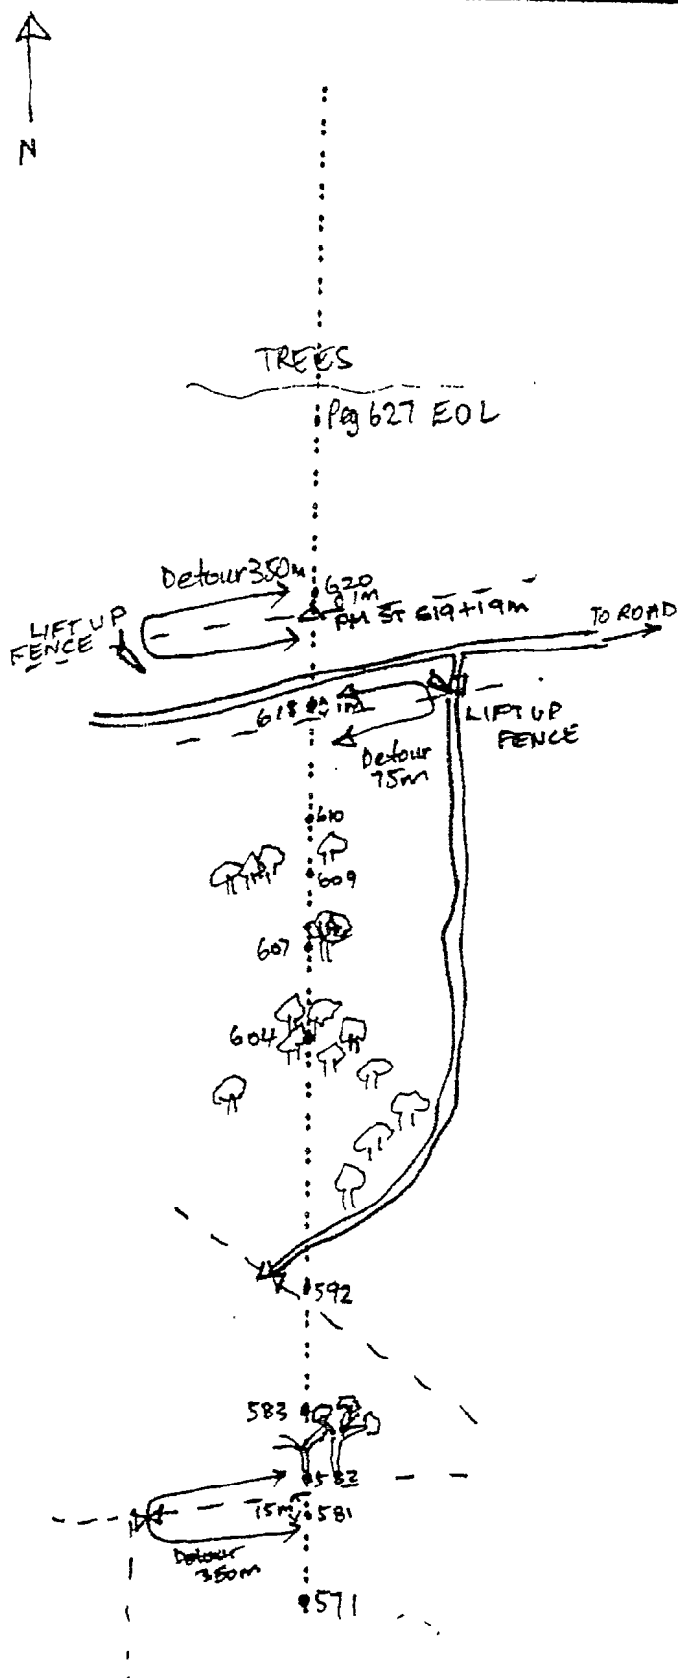 N
TREES
Peg 627 EOL
Detour 350m
620
1m
PM ST 619+19m
LIFT UP
FENCE
TO ROAD
618
1m
LIFT UP
FENCE
Detour
75m
610
609
607
604
592
583
582
15m
581
Detour
350m
571